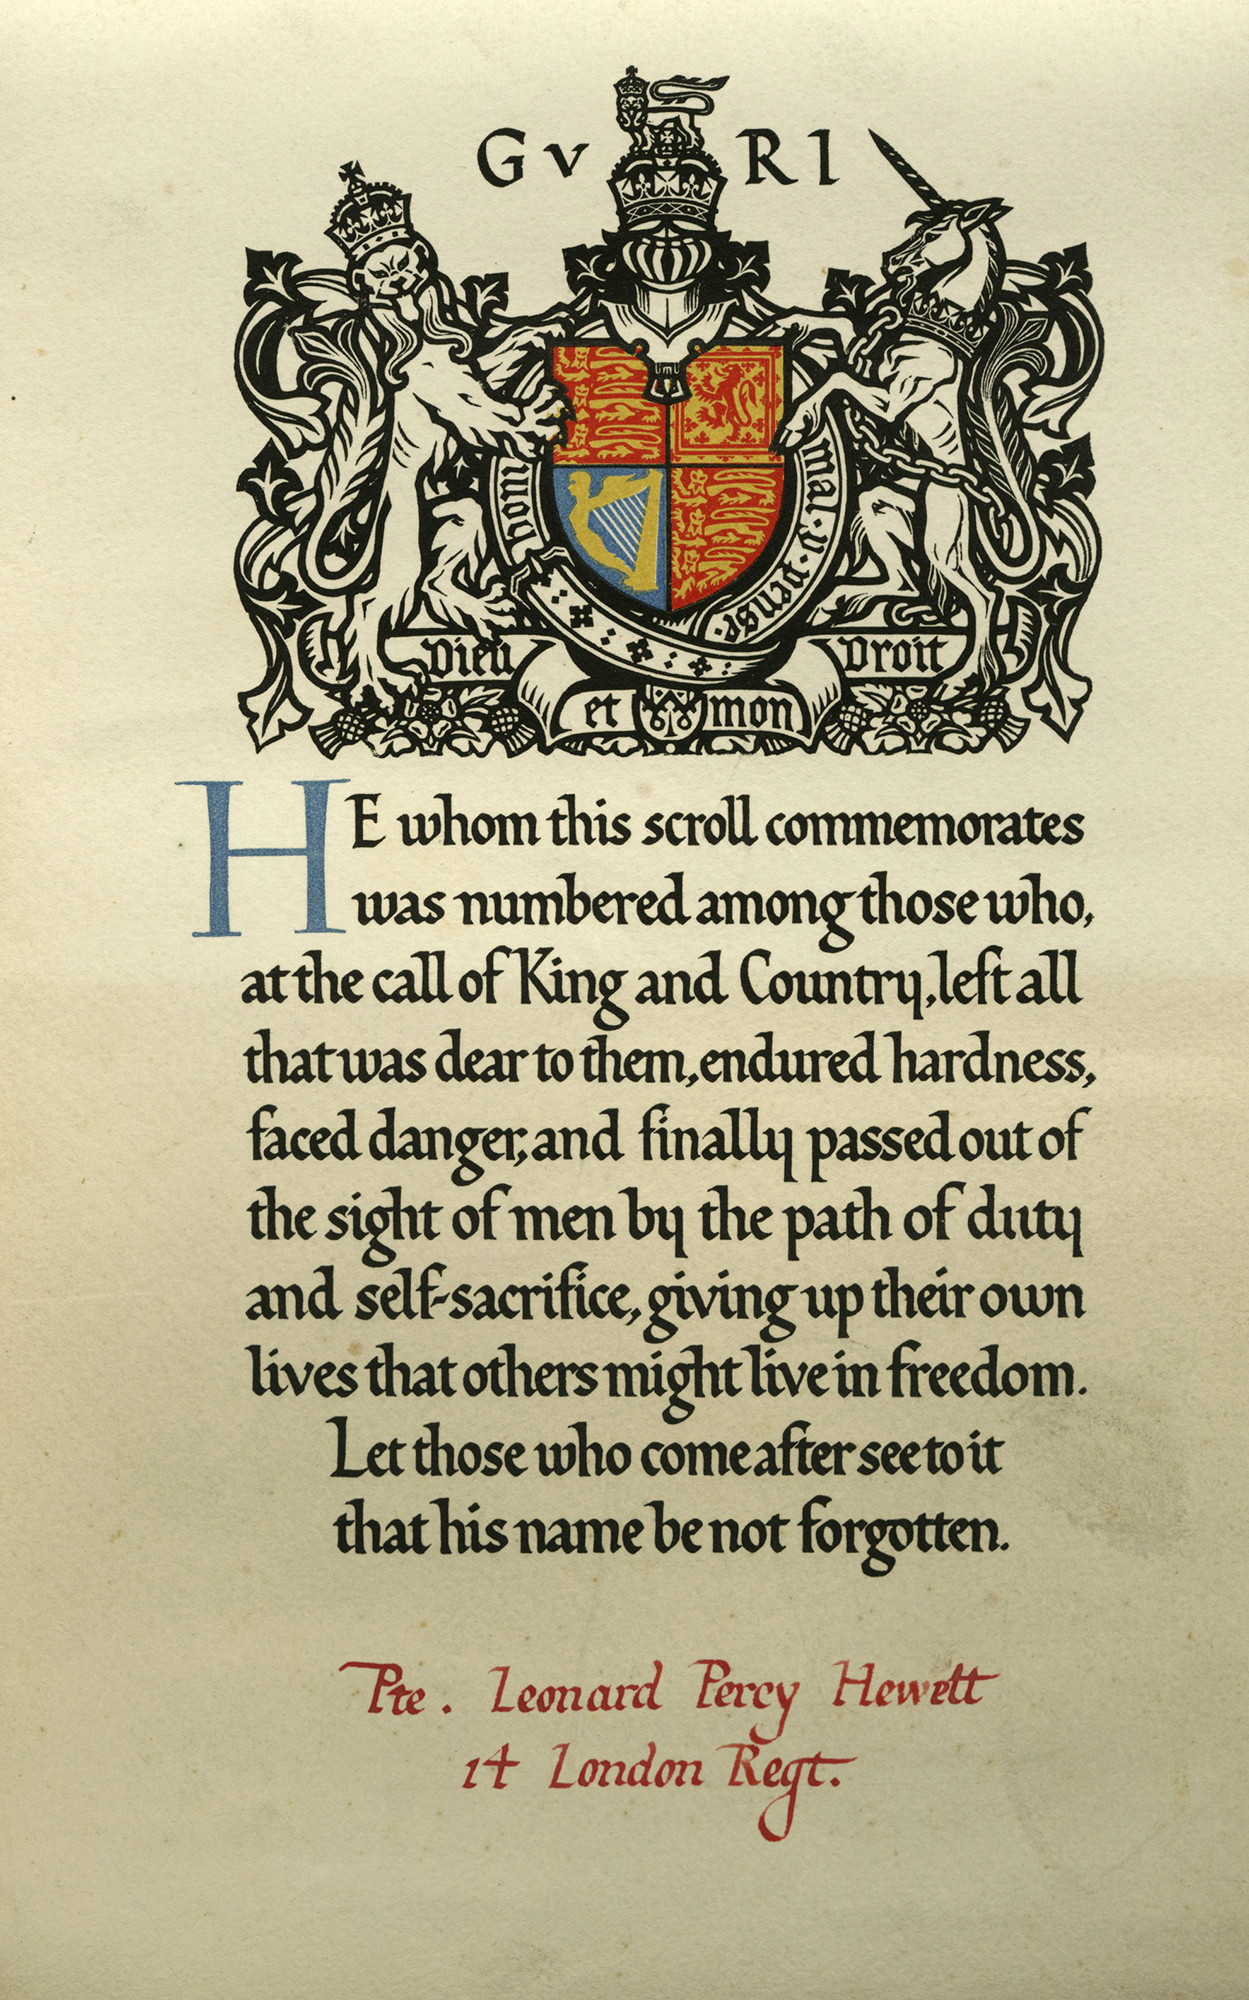 G V R I
honi
mal · y · pense ·
Dieu
Droit
et mon
HE whom this scroll commemorates
was numbered among those who,
at the call of King and Country, left all
that was dear to them, endured hardness,
faced danger, and finally passed out of
the sight of men by the path of duty
and self-sacrifice, giving up their own
lives that others might live in freedom.
Let those who come after see to it
that his name be not forgotten.
Pte. Leonard Percy Hewett
14 London Regt.